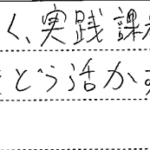 く、実践課
どう活か